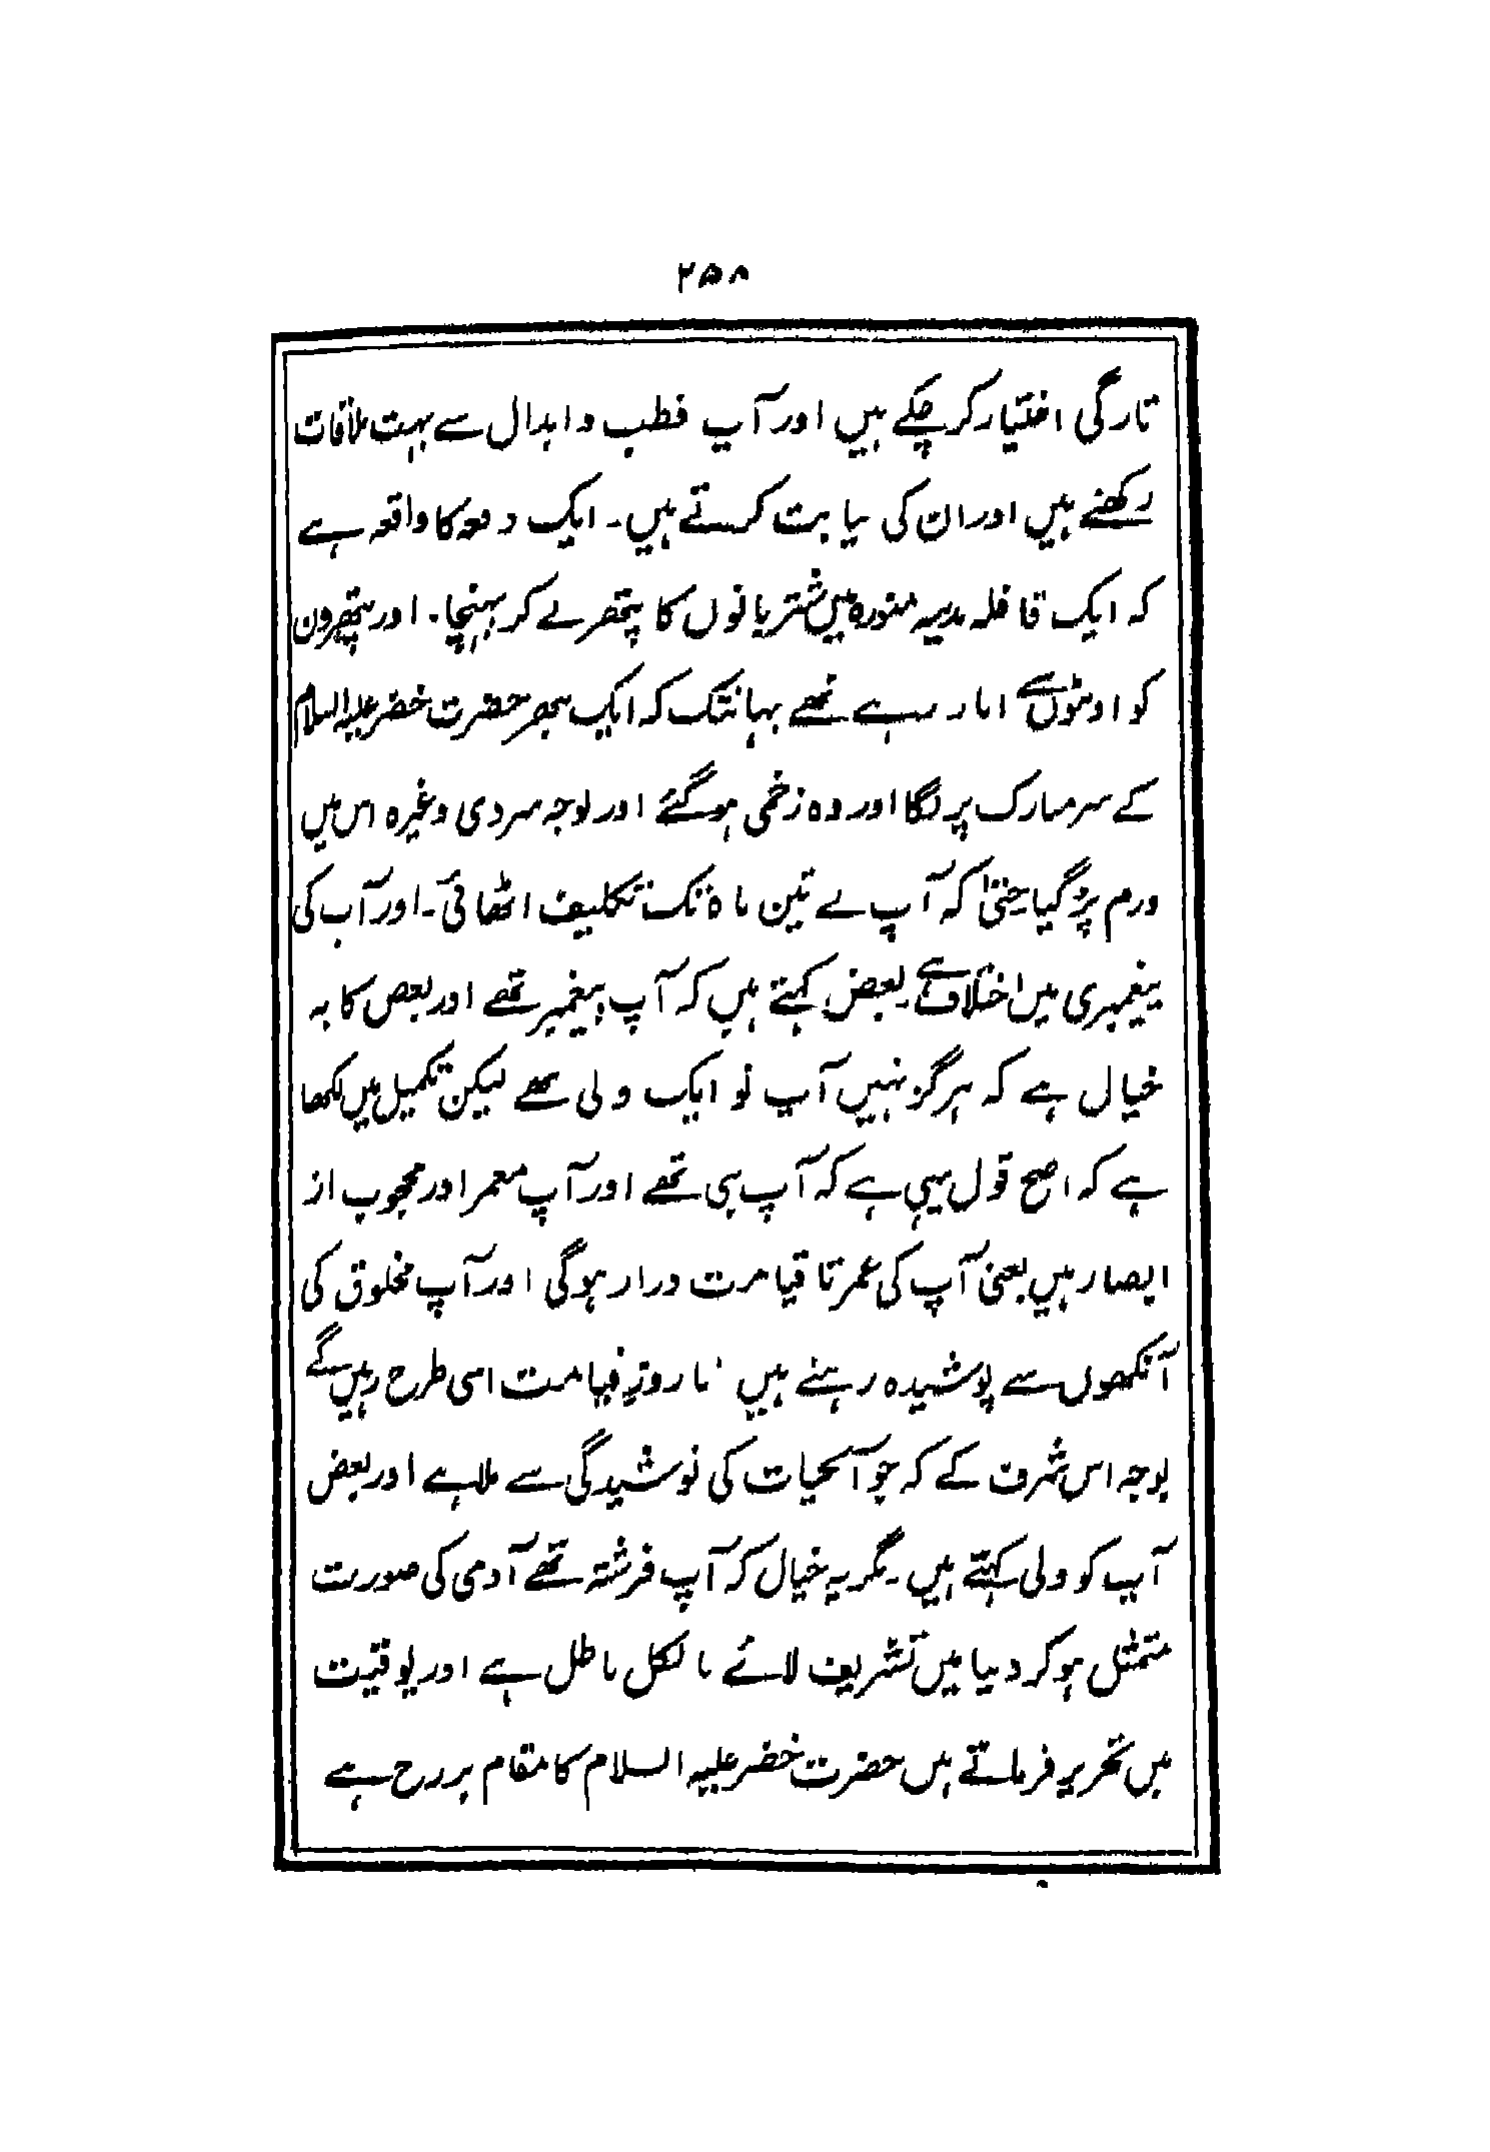 ۲۵۸
تارگی اختیار کر چکے ہیں اور آپ قطب و ابدال سے بہت ملاقات
رکھتے ہیں اور ان کی نیابت کرتے ہیں۔ ایک دفعہ کا واقعہ ہے
کہ ایک قافلہ مدینہ منورہ میں شتربانوں کا پتھر لے کر پہنچا۔ اور پتھروں
کو اونٹوں سے اتار رہے تھے یہانتک کہ ایک پتھر حضرت خضر علیہ السلام
کے سر مبارک پر لگا اور وہ زخمی ہو گئے اور بوجہ سردی وغیرہ اس میں
ورم پڑ گیا حتیٰ کہ آپ نے تین ماہ تک تکلیف اٹھائی۔ اور آپ کی
پیغمبری میں اختلاف ہے۔ بعض کہتے ہیں کہ آپ پیغمبر تھے اور بعض کا یہ
خیال ہے کہ ہرگز نہیں آپ تو ایک ولی تھے لیکن تکمیل میں لکھا
ہے کہ اصح قول یہی ہے کہ آپ نبی تھے اور آپ معمر اور محجوب از
ابصار ہیں یعنی آپ کی عمر تا قیامت دراز ہو گی اور آپ مخلوق کی
آنکھوں سے پوشیدہ رہتے ہیں تا روزِ قیامت اسی طرح رہیں گے
بوجہ اس شرف کے کہ جو آبحیات کی نوشیدگی سے ملا ہے اور بعض
آپ کو ولی کہتے ہیں۔ مگر یہ خیال کہ آپ فرشتہ تھے آدمی کی صورت
متمثل ہو کر دنیا میں تشریف لائے بالکل باطل ہے اور یوقیت
میں تحریر فرماتے ہیں حضرت خضر علیہ السلام کا مقام برزخ ہے